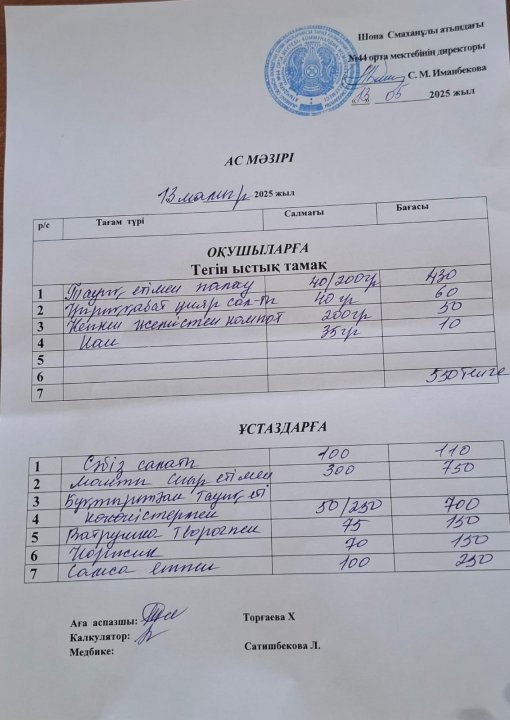 Шона Смаханұлы атындағы
№44 орта мектебінің директоры
С. М. Иманбекова
"13" 05 2025 жыл
АС МӘЗІРІ
13 мамыр 2025 жыл
р/с Тағам түрі Салмағы Бағасы
ОҚУШЫЛАРҒА
Тегін ыстық тамақ
1 Тауық етімен палау 40/200гр 430
2 қияр сал-ты 40 гр 60
3 Кепкен жемістен компот 200гр 50
4 Нан 35гр 10
5
6
7 550 теңге
ҰСТАЗДАРҒА
1 Сәбіз салаты 100 110
2 Манты сиыр етімен 300 750
3 Бұқтырылған тауық еті
4 көкөністермен 50/250 700
5 Ватрушка творогпен 75 150
6 70 150
7 Самса етпен 100 250
Аға аспазшы: Торғаева Х
Калкулятор:
Медбике: Сатишбекова Л.